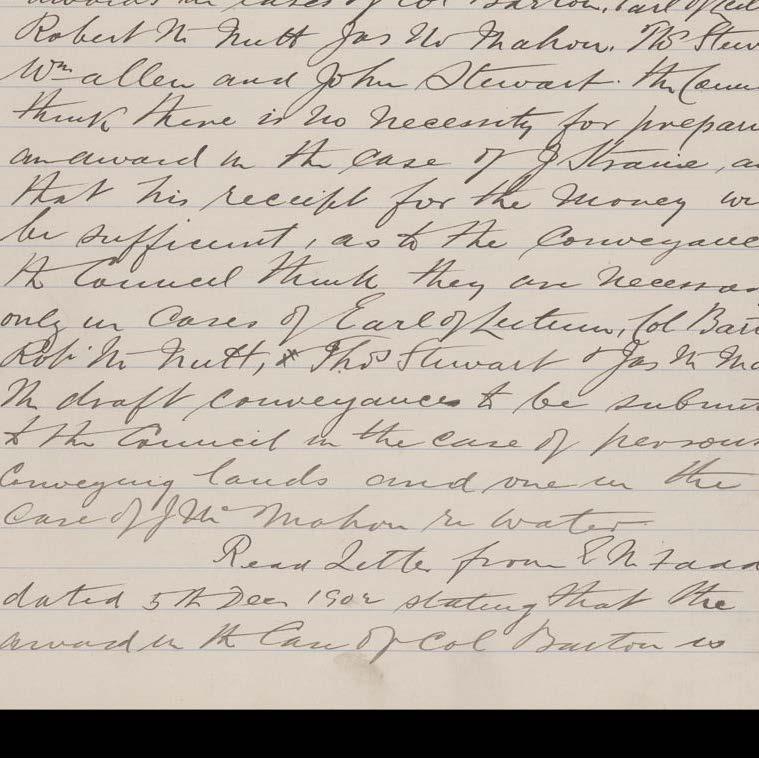 awards in cases of Col Barton, Earl of
Robert Mc Nutt Jas Mc Mahon. Thos Stew
Wm allen and John Stewart. the Coun
think there is no necessity for prepari
an award in the case of J Straine, a
that his receipt for the money wi
be sufficient, as to the conveyance
the Council think they are necessar
only in cases of Earl of Leitrim, Col Bar
Robt Mc Nutt, x Thos Stewart & Jas Mc Ma
The draft conveyances to be submit
to the Council in the case of persons
Conveying lands and one in the
case of J Mc Mahon re water
Read Letter from E Mc Fadd
dated 5th Decr 1902 stating that the
award in the Case of Col Barton is